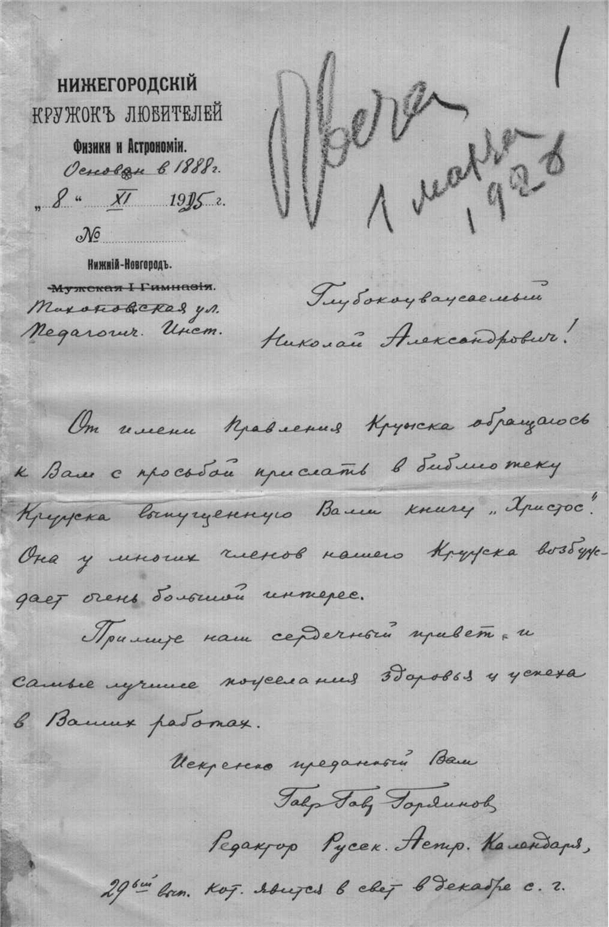 НИЖЕГОРОДСКІЙ
КРУЖОКЪ ЛЮБИТЕЛЕЙ
Физики и Астрономіи.
Основан в 1888 г.
„8" XI 1925 г.
№
Нижній-Новгородъ.
Мужская I Гимназія.
Тихоновская ул.
Педагогич. Инст.
1 марта
1926
Глубокоуважаемый
Николай Александрович!
От имени Правления Кружка обращаюсь
к Вам с просьбой прислать в библиотеку
Кружка выпущенную Вами книгу „Христос".
Она у многих членов нашего Кружка возбуж-
дает очень большой интерес.
Примите наш сердечный привет и
самые лучшие пожелания здоровья и успеха
в Ваших работах.
Искренно преданный Вам
Гавр Гавр Горяинов
Редактор Русск. Астр. Календаря,
29ый вып. кот. явится в свет в декабре с. г.